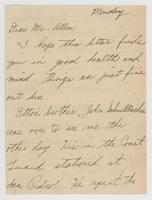 Monday
Dear Mr. Allen,
I hope this letter finds
you in good health and
mind. Things are just fine
out here.
Otto's brother, John
was over to see me the
other day. He's in the Coast
Guard stationed at
San Pedro. He spent the